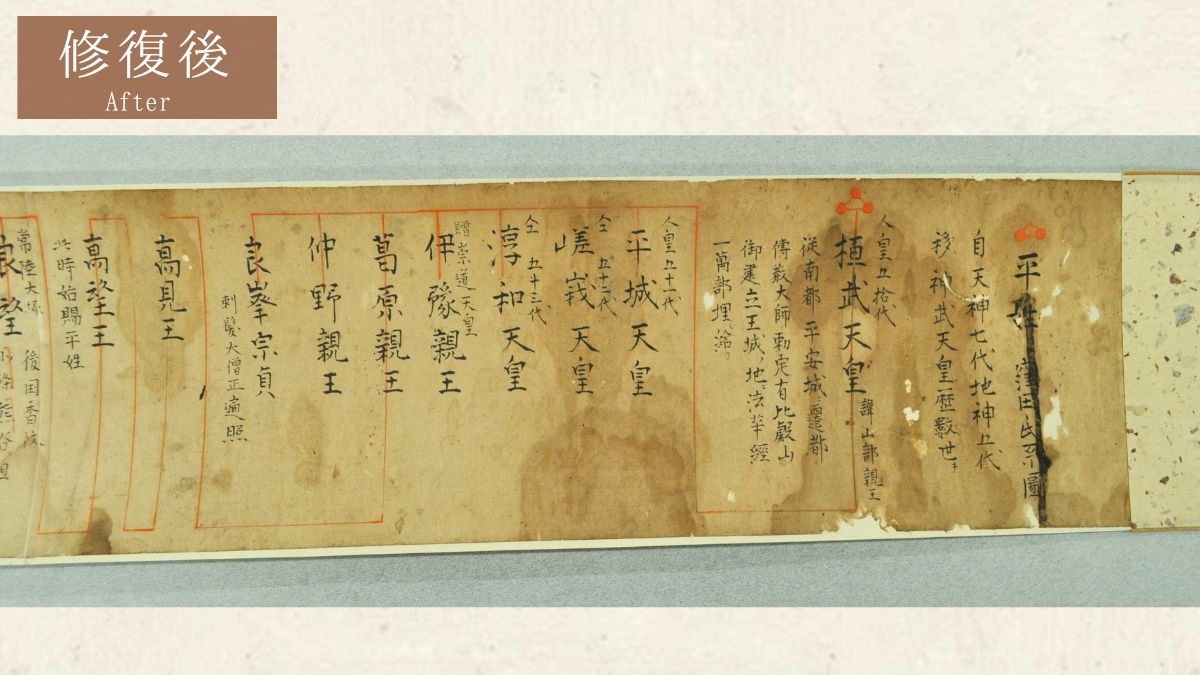 修復後
After
平姓 窪田氏系圖
自天神七代地神五代
移 神武天皇歴數世
人皇五拾代
桓武天皇
諱山部親王
從南都平安城遷都
傳教大師勅定有比叡山
御建立王城地法華經
一萬部埋
人皇五十一代
平城天皇
仝 五十二代
嵯峩天皇
仝 五十三代
淳和天皇
贈崇道天皇
伊豫親王
葛原親王
仲野親王
良峯宗貞
剃髪大僧正遍照
高見王
高望王
此時始賜平姓
常陸大掾
良望
後国香